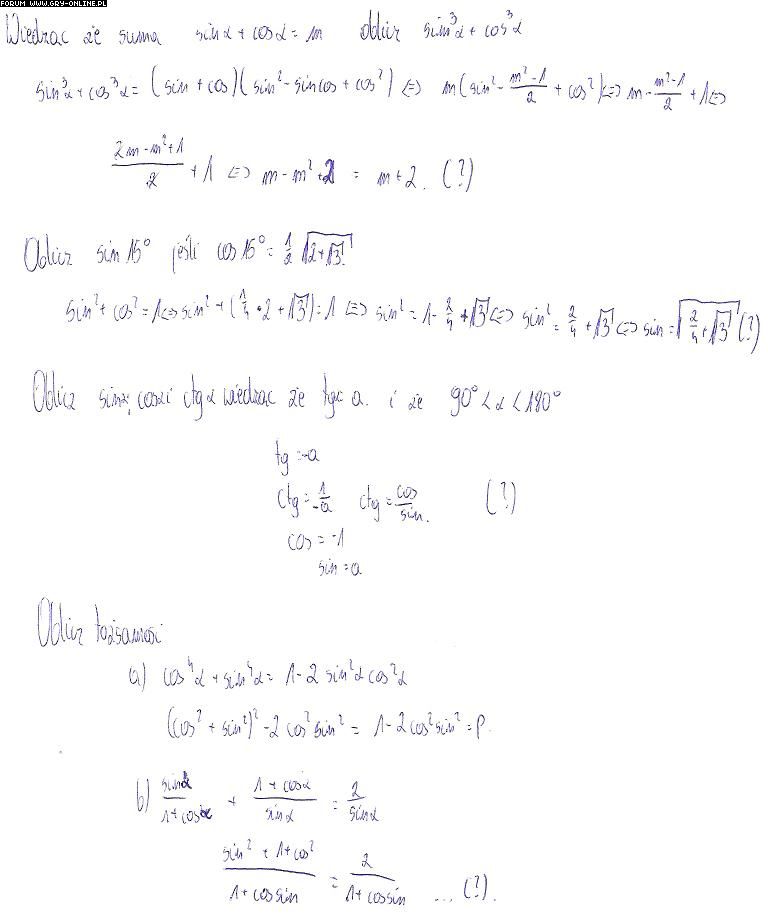 FORUM WWW.GRY-ONLINE.PL
Wiedząc że suma sinα + cosα = m oblicz sin³α + cos³α
sin³α + cos³α = (sin + cos)(sin² - sincos + cos²) ⇔ m(sin² - \frac{m²-1}{2} + cos²) ⇔ m - \frac{m²-1}{2} + 1 ⇔
\frac{2m - m² + 1}{2} + 1 ⇔ m - m² + 2 = m + 2. (?)
Oblicz sin 15° jeśli cos 15° = \frac{1}{2} √(2+√3)
sin² + cos² = 1 ⇔ sin² + (\frac{1}{4} · 2 + √3) = 1 ⇔ sin² = 1 - \frac{2}{4} + √3 ⇔ sin² = \frac{2}{4} + √3 ⇔ sin = √(\frac{2}{4} + √3) (?)
Oblicz sinα, cosα i ctgα wiedząc że tgα a. i że 90° < α < 180°
tg = -a
ctg = \frac{1}{-a} ctg = \frac{cos}{sin}. (?)
cos = -1
sin = a
Oblicz tożsamości
a) cos⁴α + sin⁴α = 1 - 2 sin²α cos²α
(cos² + sin²)² - 2 cos² sin² = 1 - 2cos² sin² = P.
b) \frac{sinα}{1 + cosα} + \frac{1 + cosα}{sinα} = \frac{2}{sinα}
\frac{sin² + 1 + cos²}{1 + cossin} = \frac{2}{1 + cossin} ... (?).